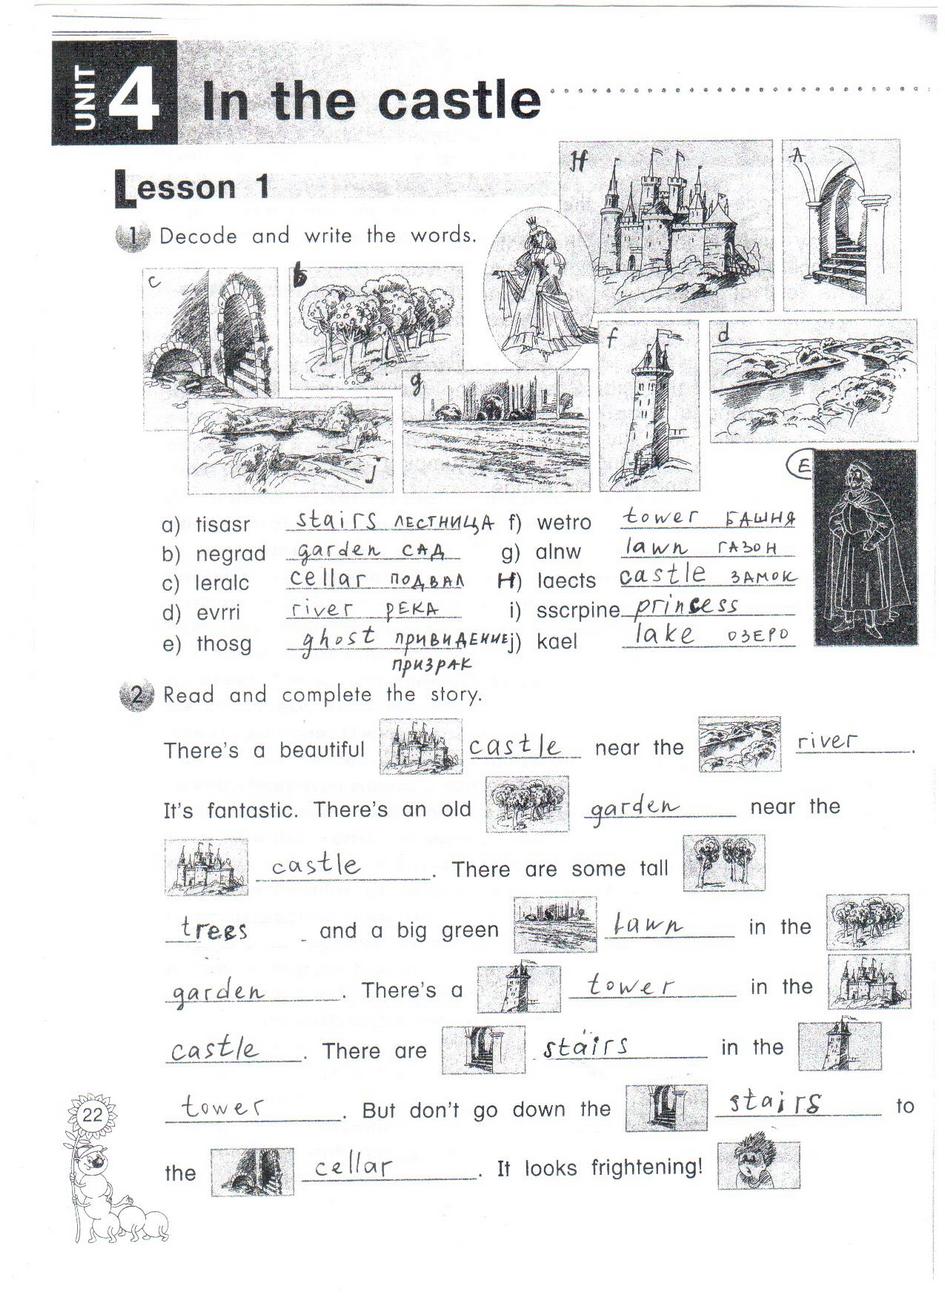 UNIT 4 In the castle
Lesson 1
1 Decode and write the words.
H
A
c
b
f
d
g
j
E
a) tisasr stairs ЛЕСТНИЦА f) wetro tower БАШНЯ
b) negrad garden САД g) alnw lawn ГАЗОН
c) leralc cellar ПОДВАЛ H) laects castle ЗАМОК
d) evrri river РЕКА i) sscrpine princess
e) thosg ghost ПРИВИДЕНИЕ j) kael lake ОЗЕРО
ПРИЗРАК
2 Read and complete the story.
There's a beautiful castle near the river.
It's fantastic. There's an old garden near the
castle. There are some tall
trees and a big green lawn in the
garden. There's a tower in the
castle. There are stairs in the
tower. But don't go down the stairs to
the cellar. It looks frightening!
22